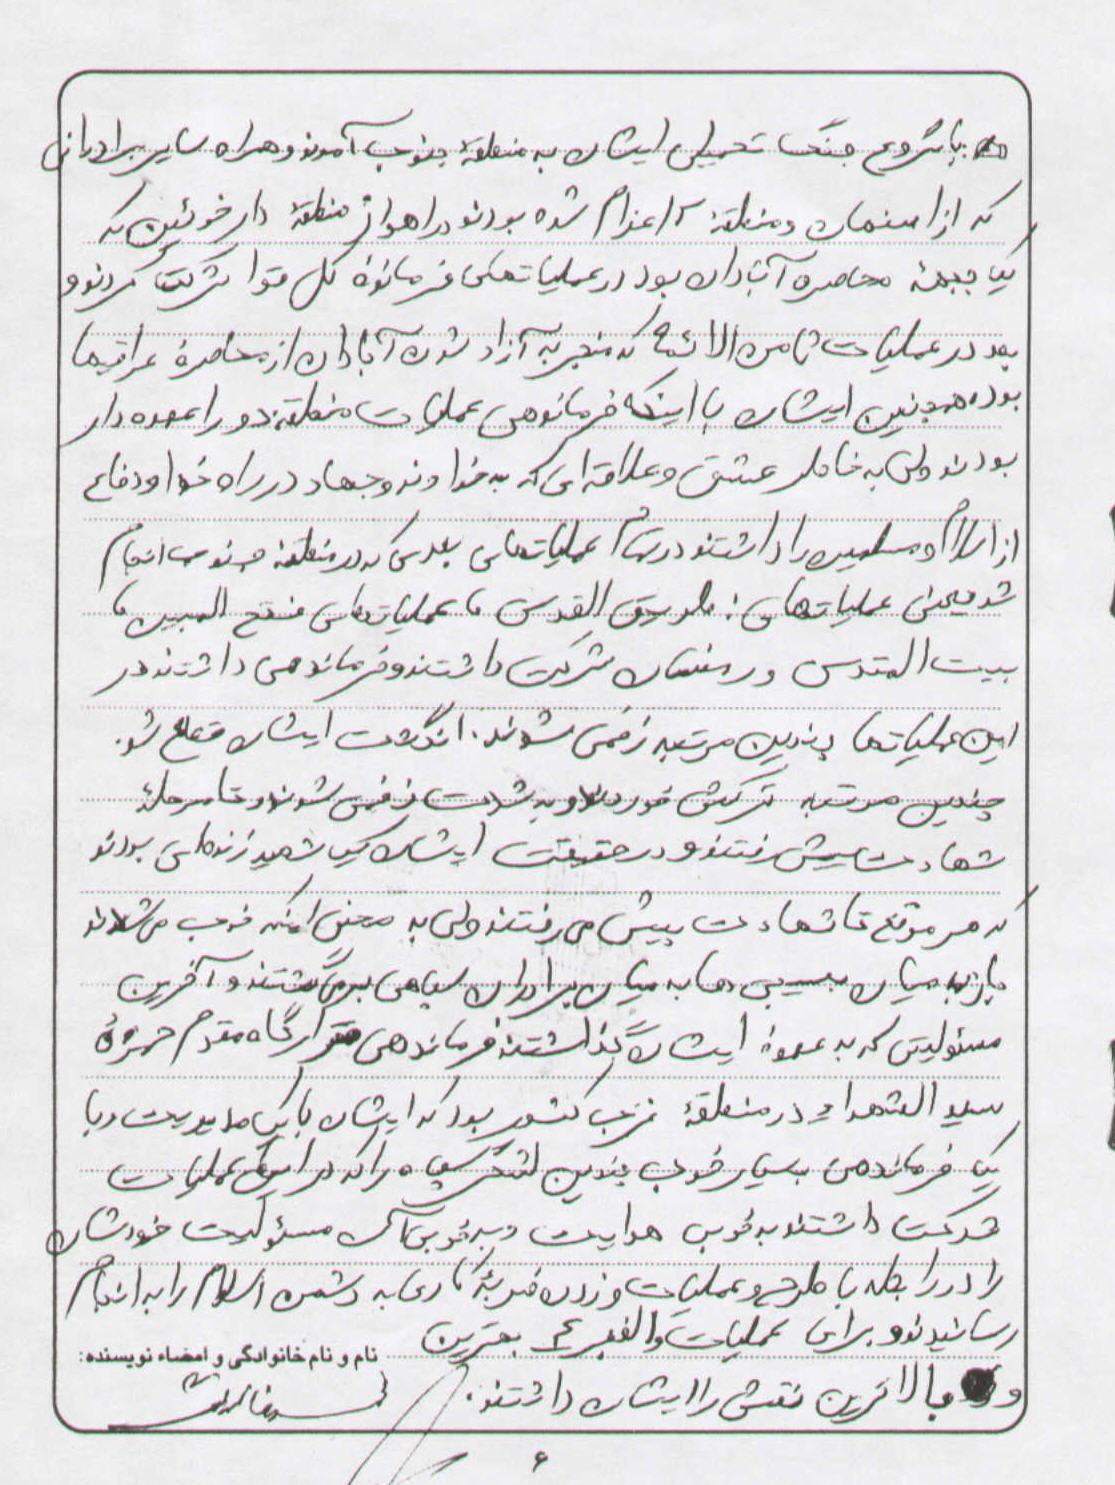 با شروع جنگ تحمیلی ایشان به منطقهٔ جنوب آمدند و همراه سایر برادرانی
که از اصفهان و منطقهٔ ۲ اعزام شده بودند در اهواز منطقهٔ دارخوئین که
یک جبههٔ محاصره آبادان بود در عملیات‌های فرمانده کل قوا شرکت کردند و
بعد در عملیات ثامن الائمه که منجر به آزاد شدن آبادان از محاصرهٔ عراقیها
بوده همچنین ایشان با اینکه فرماندهی عملیات منطقه دو را عهده دار
بودند ولی به خاطر عشق و علاقه‌ای که به خداوند و جهاد در راه خدا و دفاع
از اسلام و مسلمین را داشتند در تمام عملیاتهای بعدی که در منطقهٔ جنوب انجام
شد یعنی عملیاتهای: طریق القدس، عملیات‌های فتح المبین،
بیت المقدس و رمضان شرکت داشتند و فرماندهی داشتند در
این عملیاتها چندین مرتبه زخمی شدند. انگشت ایشان قطع شد.
چندین مرتبه ترکش خوردند و به شدت زخمی شدند و تا مرحلهٔ
شهادت پیش رفتند و در حقیقت ایشان یک شهید زنده‌ای بودند
که هر موقع تا شهادت پیش می رفتند ولی به محض اینکه خوب می شدند
باز به میان بسیجی ها به میان برادران سپاهی برمی‌گشتند و آخرین
مسئولیتی که به عهدهٔ ایشان گذاشتند فرماندهی قرارگاه مقدم حمزهٔ
سید الشهداء در منطقهٔ غرب کشور بود که ایشان با یک مدیریت و با
یک فرماندهی بسیار خوب چندین لشگر سپاه را که در این عملیات
شرکت داشتند به خوبی هدایت و به خوبی مسئولیت خودشان
را در رابطه با طرح و عملیات و زدن ضربهٔ کاری به دشمن اسلام را به انجام
رسانیدند و برای عملیات والفجر ۴ بهترین
نام و نام خانوادگی و امضاء نویسنده:
و بالاترین نقش را ایشان داشتند.
۶